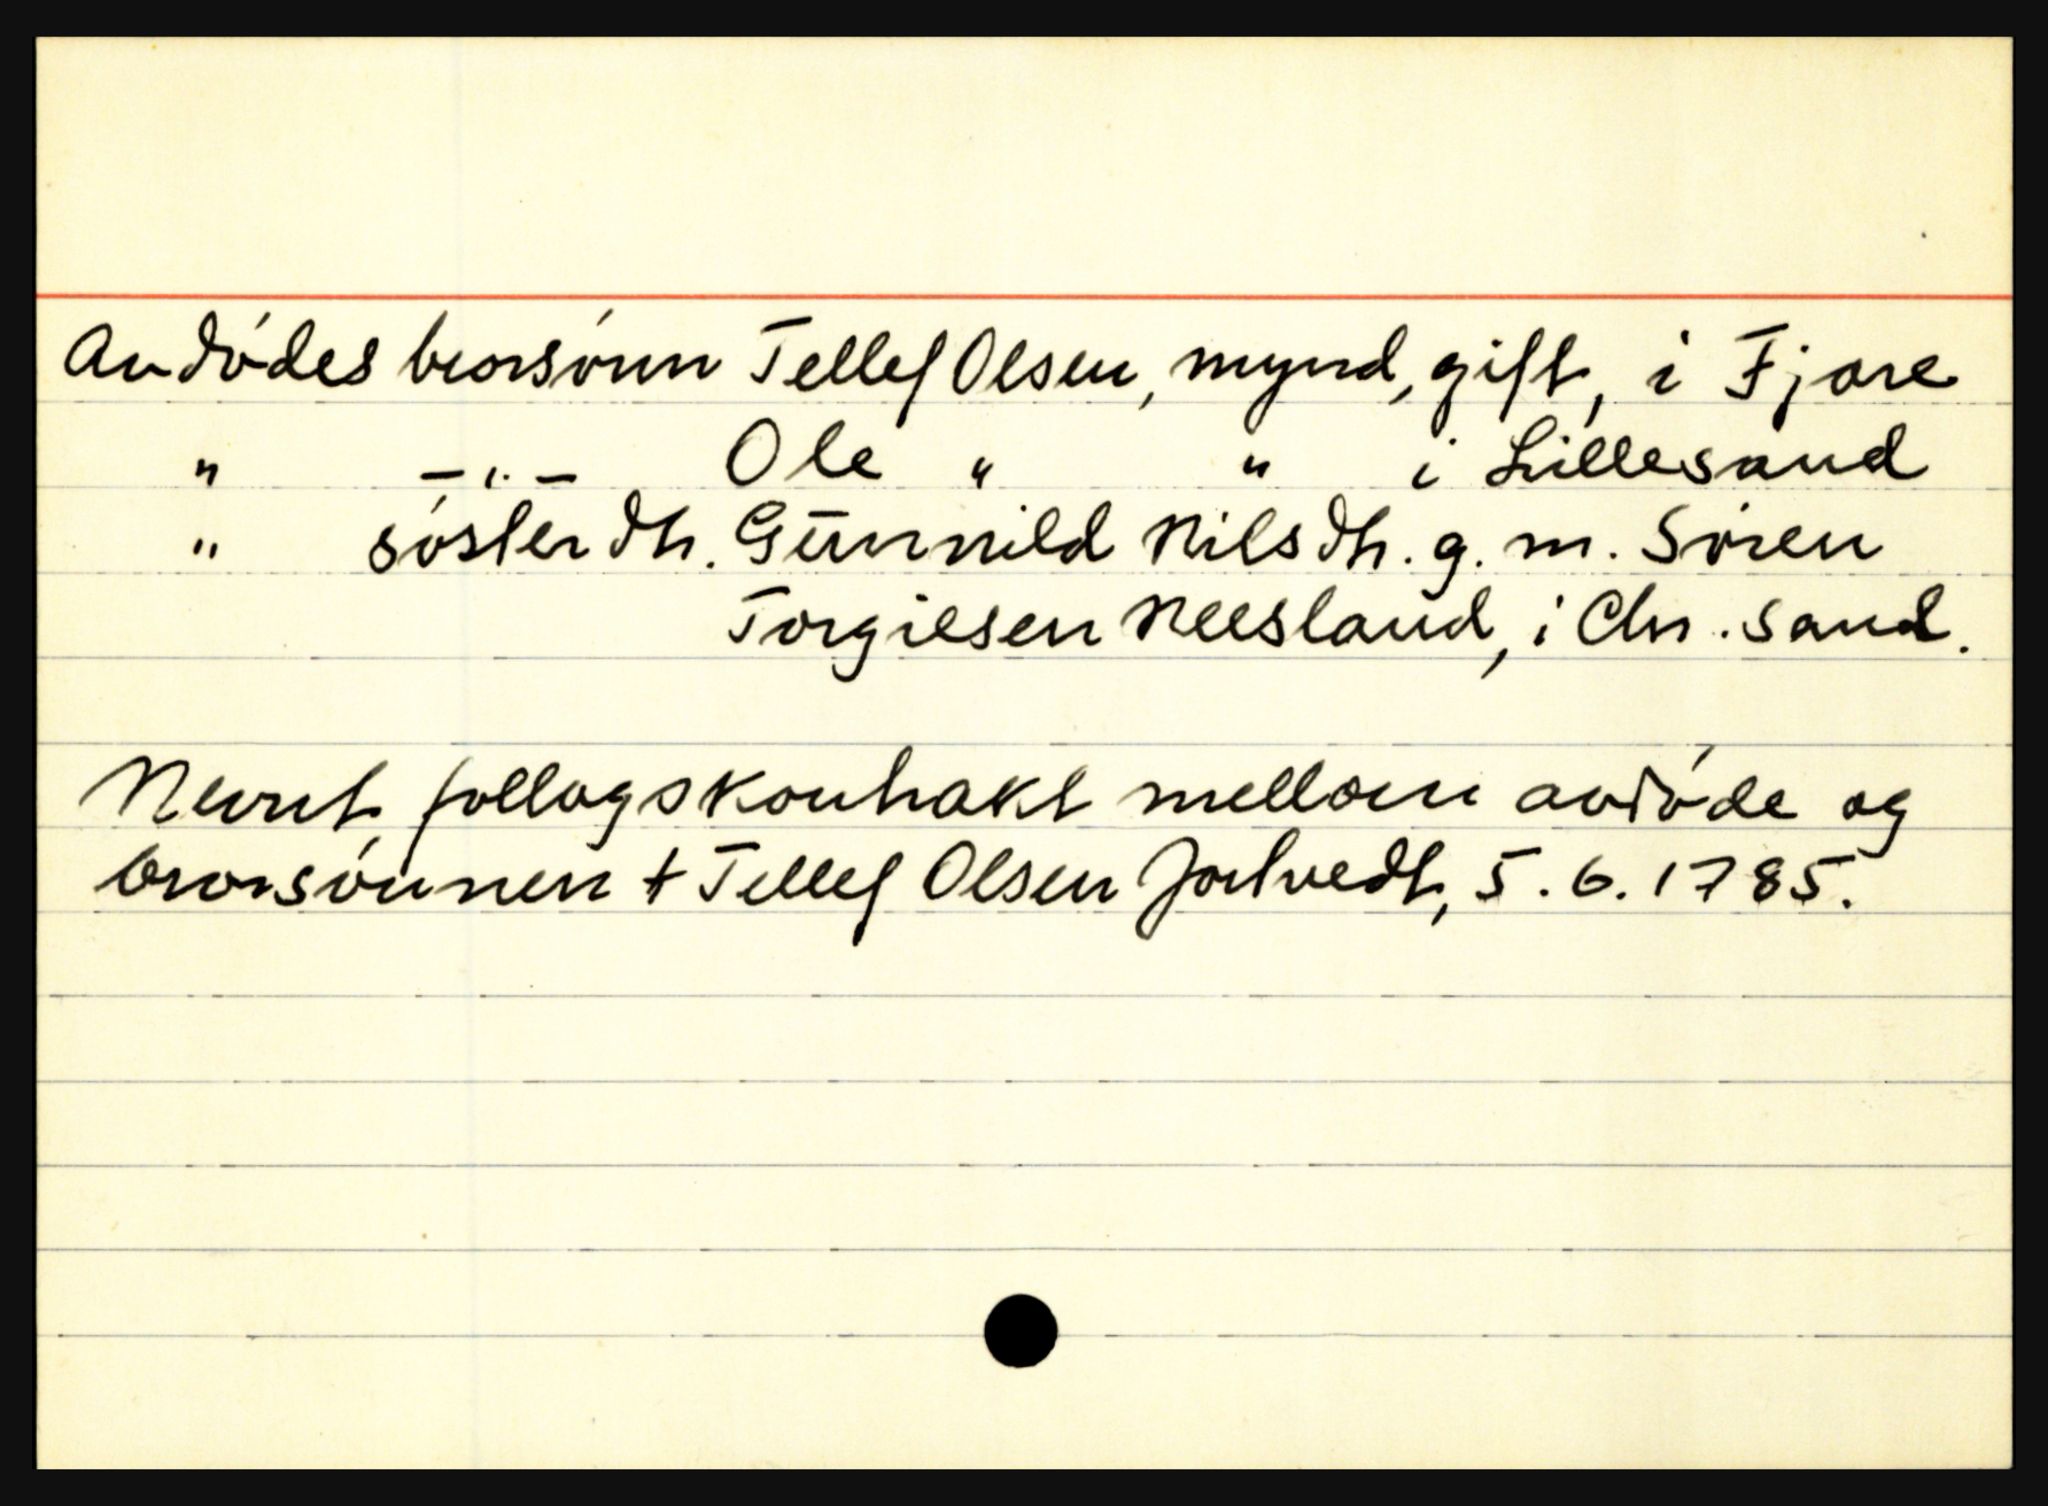 Avdødes brorsønn Tellef Olsen, mynd, gift, i Fjære
" — " — Ole " " i Lillesand
" søsterdtr. Gunnild Nilsdtr. g. m. Søren
Torgiesen Neesland, i Chr.sand.
Nevnt follagskontrakt mellom avdøde og
brorsønnen + Tellef Olsen Jortvedt, 5.6.1785.